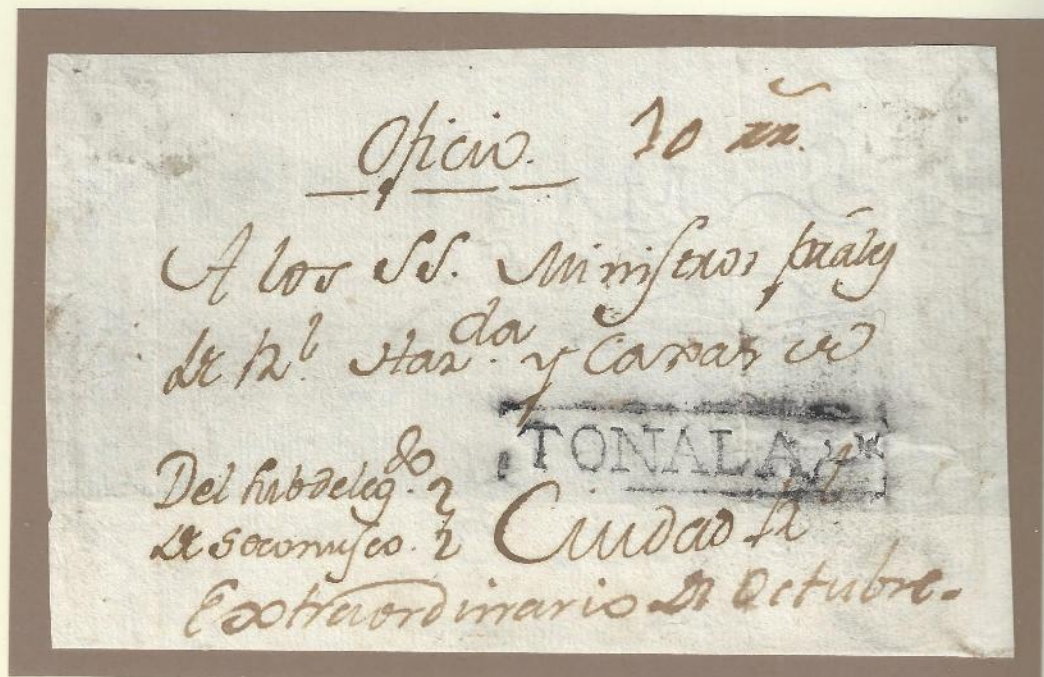 Oficio. 10 rr.
A los SS. Ministros prales
de Rl. Haz.da y Caxas de
TONALA
Del Subdeleg.do
de Soconusco. Ciudad Rl
Extraordinario de Octubre.